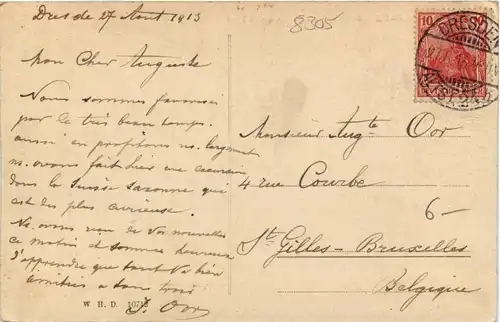 Dresde 27 Août 1913
8305
Mon Cher Auguste
Nous sommes favorisés
par le très beau temps.
aussi en profitons ns. largement
ns. avons fait hier une excursion
dans la Suisse Saxonne qui
est des plus curieuse.
Ns. avons reçu de Vos nouvelles
ce matin et sommes heureux
d'apprendre que tout va bien
amitiés à tous
J. Oor
W. H. D. 10712
10 10
DRESDEN
ALTST.
Monsieur Aug.te Oor
4 rue Courbe
6-
St Gilles - Bruxelles
Belgique